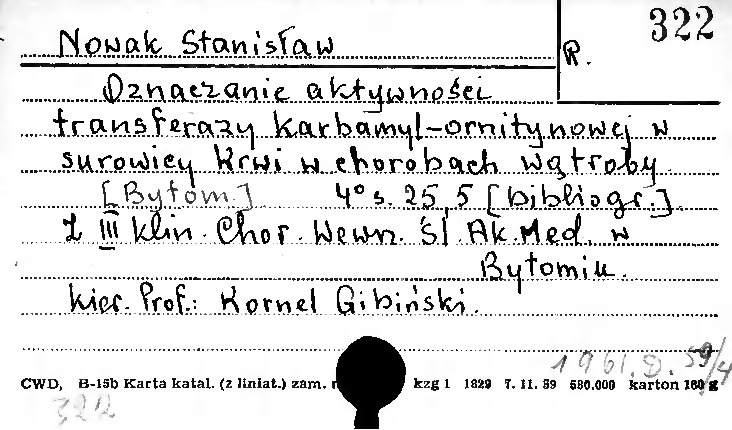 322
Nowak Stanisław
R.
Oznaczanie aktywności
transferazy karbamyl-ornitynowej w
surowicy krwi w chorobach wątroby
[Bytom.] 4° s. 25, 5 [bibliogr.].
Z III Klin. Chor. Wewn. Śl. Ak. Med. w
Bytomiu.
Kier. Prof.: Kornel Gibiński.
1961.D.59/4
CWD, B-15b Karta katal. (z liniat.) zam. kzg 1 1829 7. 11. 59 580.000 karton 160 g
322